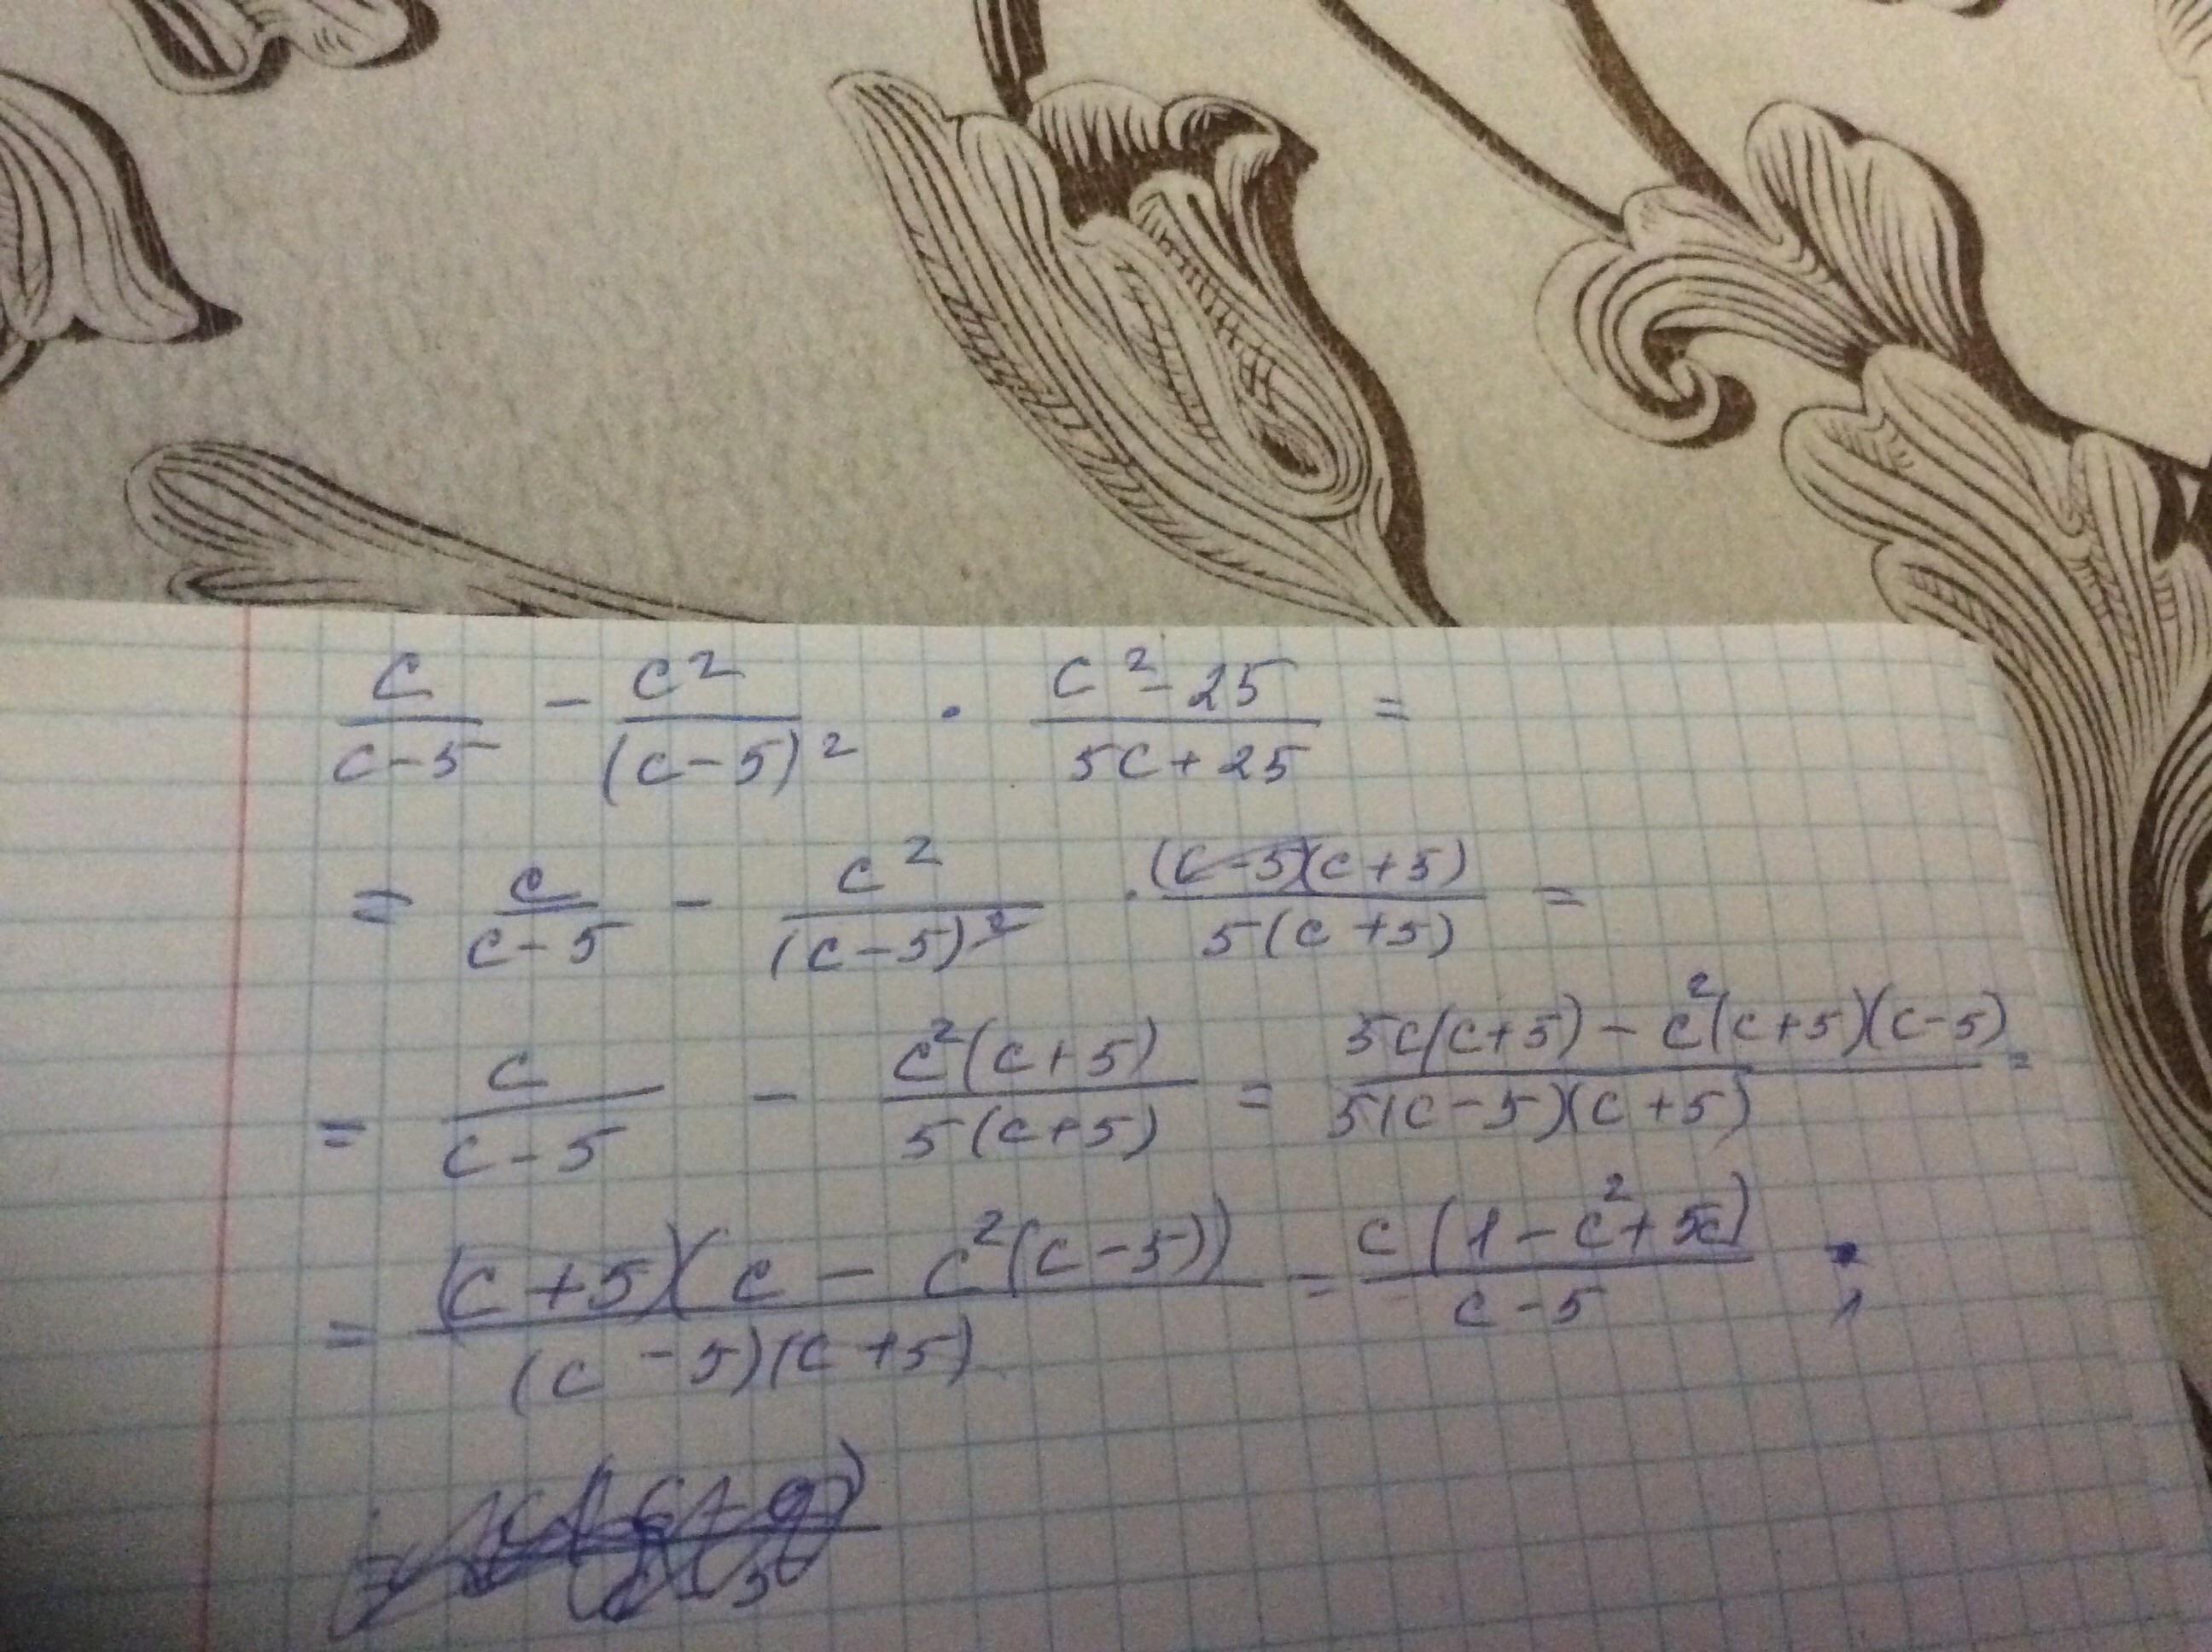 c/(c-5) - c²/(c-5)² · (c²-25)/(5c+25) =
= c/(c-5) - c²/(c-5)² · (c-5)(c+5)/5(c+5) =
= c/(c-5) - c²(c+5)/5(c+5) = 5c(c+5) - c²(c+5)(c-5)/5(c-5)(c+5) =
= (c+5)(c - c²(c-5))/(c-5)(c+5) = c(1-c²+5c)/(c-5) ;